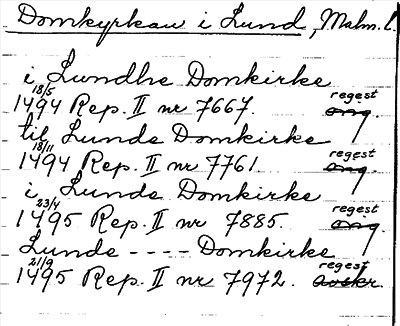 Domkyrkan i Lund, Malm. l.
i Lundhe Domkirke
18/5 1494 Rep. II nr 7667. regest orig.
til Lunde Domkirke
18/11 1494 Rep. II nr 7761. regest orig.
i Lunde Domkirke
23/4 1495 Rep. II nr 7885. regest orig.
Lunde - - - - Domkirke
21/9 1495 Rep. II nr 7972. regest avskr.